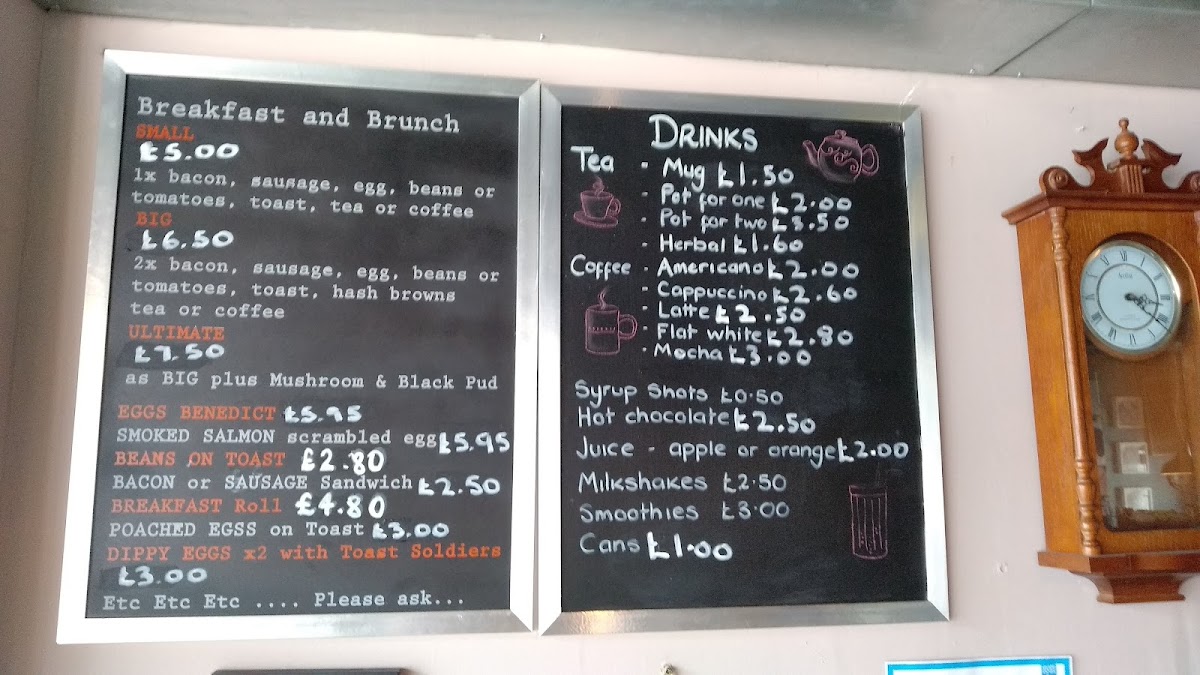 Breakfast and Brunch
SMALL
£5.00
1x bacon, sausage, egg, beans or
tomatoes, toast, tea or coffee
BIG
£6.50
2x bacon, sausage, egg, beans or
tomatoes, toast, hash browns
tea or coffee
ULTIMATE
£7.50
as BIG plus Mushroom & Black Pud
EGGS BENEDICT £5.95
SMOKED SALMON scrambled egg £5.95
BEANS ON TOAST £2.80
BACON or SAUSAGE Sandwich £2.50
BREAKFAST Roll £4.80
POACHED EGSS on Toast £3.00
DIPPY EGGS x2 with Toast Soldiers
£3.00
Etc Etc Etc .... Please ask...
DRINKS
Tea - Mug £1.50
- Pot for one £2.00
- Pot for two £3.50
- Herbal £1.60
Coffee - Americano £2.00
- Cappuccino £2.60
- Latte £2.50
- Flat white £2.80
- Mocha £3.00
Syrup Shots £0.50
Hot chocolate £2.50
Juice - apple or orange £2.00
Milkshakes £2.50
Smoothies £3.00
Cans £1.00